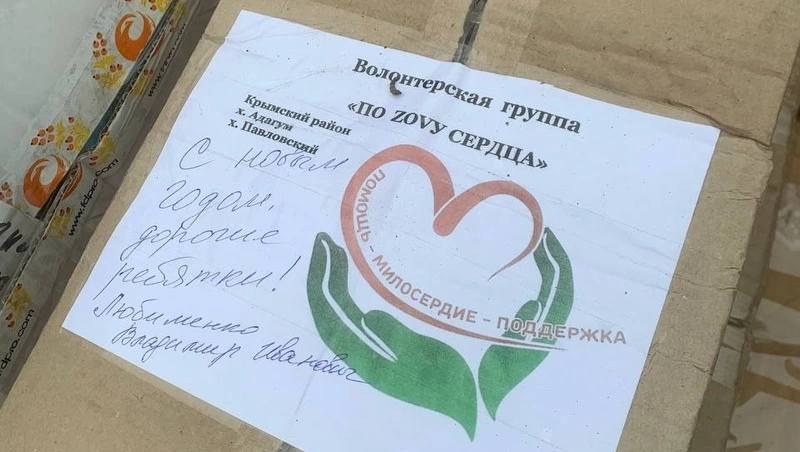 Волонтерская группа
«ПО ZOVУ СЕРДЦА»
Крымский район
х. Адагум
х. Павловский
С новым
годом,
дорогие
ребятки!
Любименко
Владимир Иванович
ПОМОЩЬ - МИЛОСЕРДИЕ - ПОДДЕРЖКА
www.fdpro.com